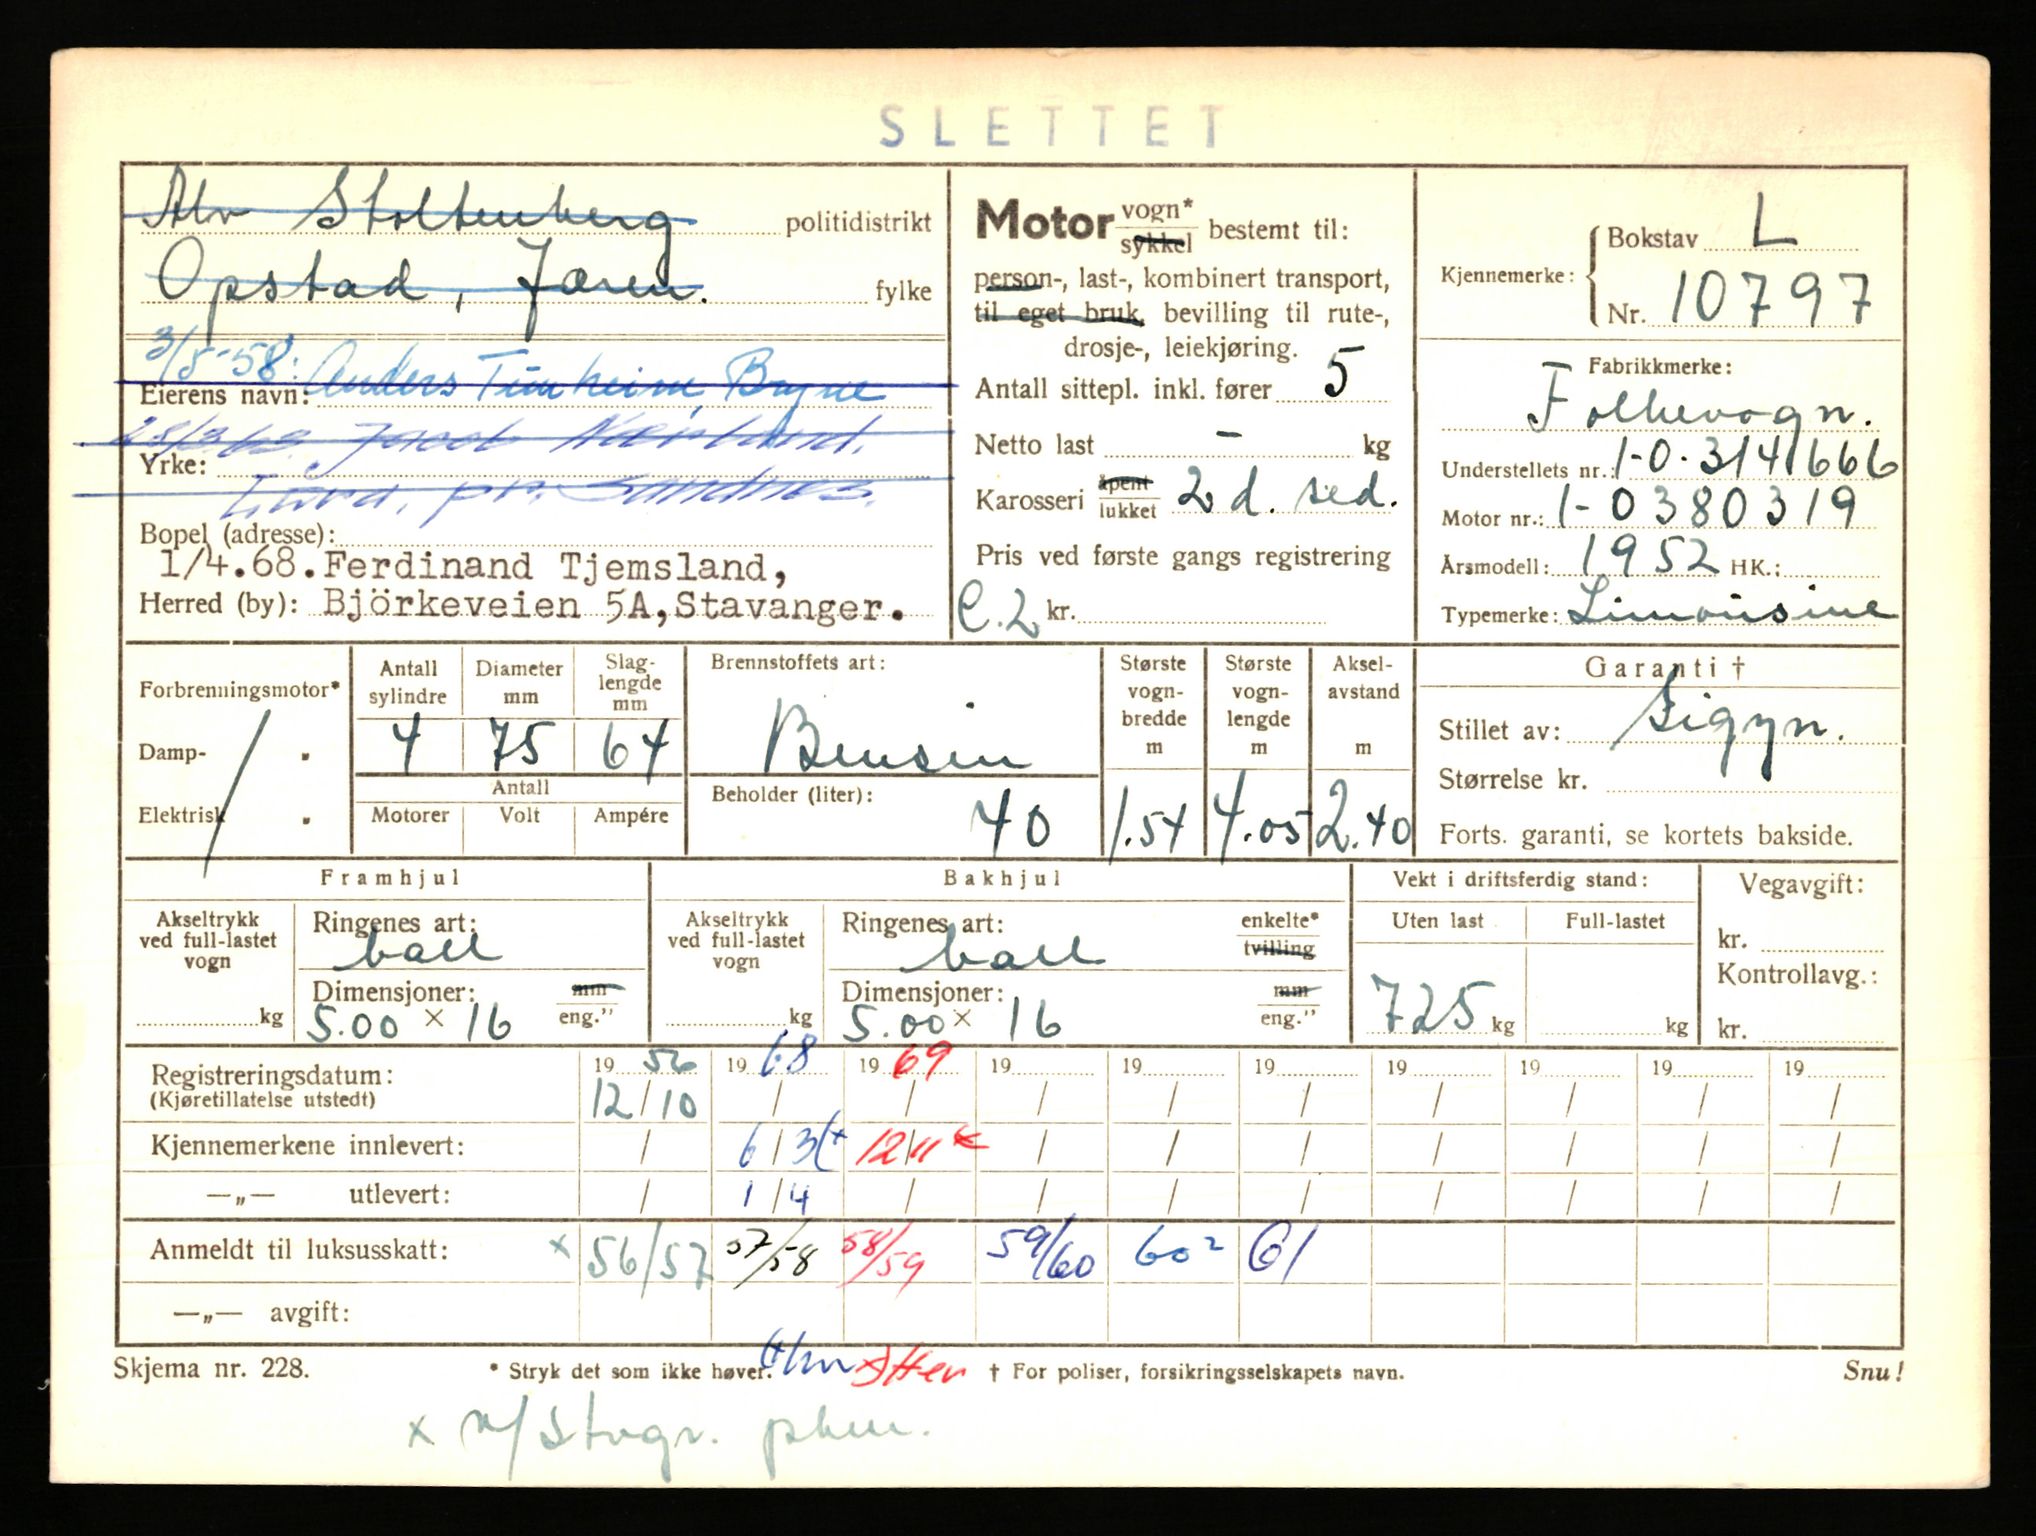 SLETTET
Alv Stoltenberg politidistrikt
Opstad, Jæren. fylke
3/5-58: Anders Tunheim, Bryne
Eierens navn:
Jacob Nærland.
Yrke:
Lura, pr. Sandnes.
Bopel (adresse):
1/4.68. Ferdinand Tjemsland,
Herred (by): Björkeveien 5A, Stavanger.
Motor vogn* sykkel bestemt til:
person-, last-, kombinert transport,
til eget bruk, bevilling til rute-,
drosje-, leiekjøring.
Antall sittepl. inkl. fører 5
Netto last - kg
Karosseri åpent lukket 2 d. sed.
Pris ved første gangs registrering
C.2 kr.
Kjennemerke: Bokstav L
Nr. 10797
Fabrikkmerke:
Folkevogn.
Understellets nr.: 1-0.3141666
Motor nr.: 1-0380319
Årsmodell: 1952 HK.:
Typemerke: Limousine
Forbrenningsmotor*
Damp- "
Elektrisk "
Antall sylindre Diameter mm Slag-lengde mm
4 75 64
Antall
Motorer Volt Ampére
Brennstoffets art:
Bensin
Beholder (liter):
40
Største vogn-bredde m 1.54
Største vogn-lengde m 4.05
Aksel-avstand m 2.40
Garanti †
Stillet av: Sigyn.
Størrelse kr.
Forts. garanti, se kortets bakside.
Framhjul
Akseltrykk ved full-lastet vogn kg
Ringenes art: ball
Dimensjoner: mm
5.00 x 16 eng."
Bakhjul
Akseltrykk ved full-lastet vogn kg
Ringenes art: ball enkelte* tvilling
Dimensjoner: mm
5.00 x 16 eng."
Vekt i driftsferdig stand:
Uten last Full-lastet
725 kg kg
Vegavgift:
kr.
Kontrollavg.:
kr.
Registreringsdatum: 19 56 19 68 19 69 19 19 19 19 19 19 19
(Kjøretillatelse utstedt) 12/10 / / / / / / / / /
Kjennemerkene innlevert: / 6/3 12/11 / / / / / / /
—„— utlevert: / 1/4 / / / / / / / /
Anmeldt til luksusskatt: x 56/57 57/58 58/59 59/60 60² 61
—„— avgift:
Skjema nr. 228. * Stryk det som ikke høver. † For poliser, forsikringsselskapets navn. Snu!